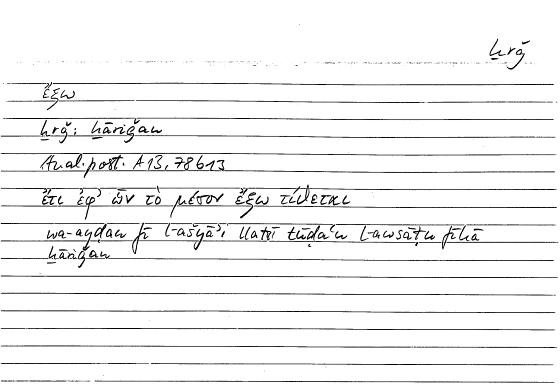 ḫrǧ
ἔξω
ḫrǧ: ḫāriǧan
Anal. post. A 13, 78 b 13
ἔτι ἐφ’ ὧν τὸ μέσον ἔξω τίθεται
wa-ayḍan fī l-ašyāʾi llatī tūḍaʿu l-awsāṭu fīhā
ḫāriǧan